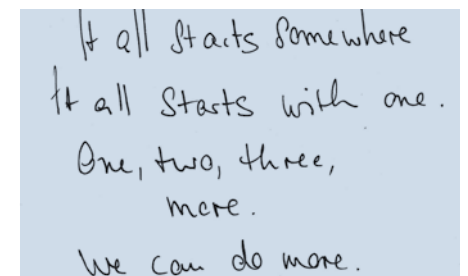 It all starts somewhere
It all starts with one.
One, two, three,
more.
We can do more.